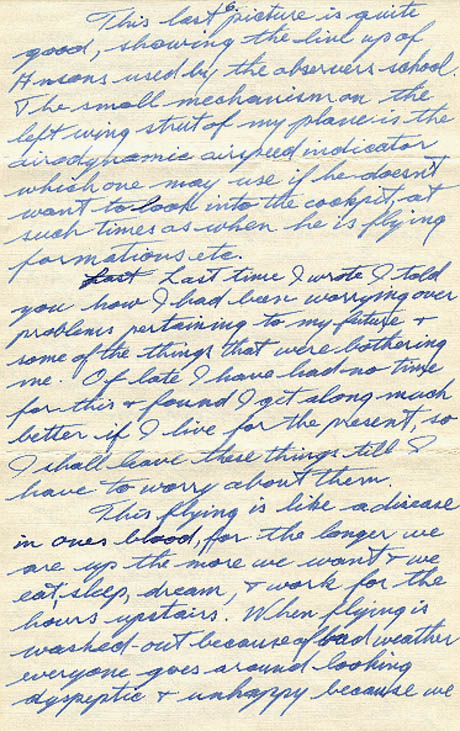 This last 6 picture is quite
good, showing the line up of
Ansons used by the observers school.
The small mechanism on the
left wing strut of my plane is the
airodynamic airspeed indicator
which one may use if he doesn't
want to look into the cockpit, at
such times as when he is flying
formations etc.
Last Last time I wrote I told
you how I had been worrying over
problems pertaining to my future +
some of the things that were bothering
me. Of late I have had no time
for this + found I get along much
better if I live for the present, so
I shall leave these things till I
have to worry about them.
This flying is like a disease
in ones blood, for the longer we
are up the more we want + we
eat, sleep, dream, + work for the
hours upstairs. When flying is
washed-out because of bad weather
everyone goes around looking
dyspeptic + unhappy because we